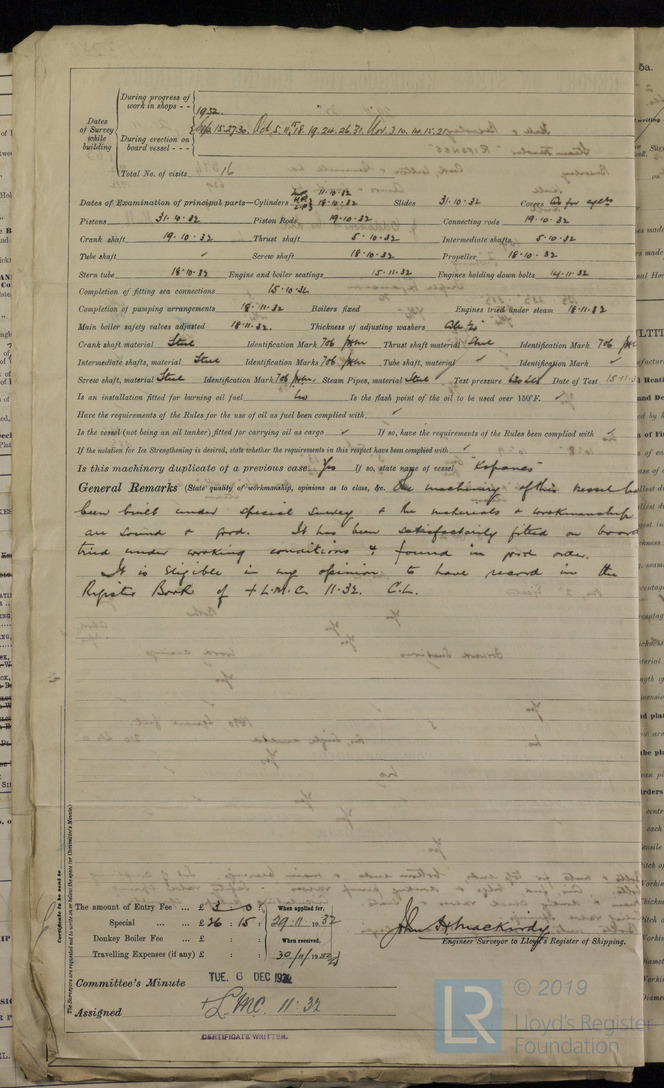 Dates of Survey while building
During progress of work in shops - -
1932.
During erection on board vessel - - -
15.27.30. Oct. 5. 11. 18. 19. 24. 26. 31. Nov. 3. 10. 14. 15. 21
Total No. of visits 16
Dates of Examination of principal parts—Cylinders 11.10.32 18.10.32 Slides 31.10.32 Covers as for cylrs
Pistons 31.10.32 Piston Rods 19.10.32 Connecting rods 19.10.32
Crank shaft 19.10.32 Thrust shaft 5.10.32 Intermediate shafts 5.10.32
Tube shaft ✓ Screw shaft 18.10.32 Propeller 18.10.32
Stern tube 18.10.32 Engine and boiler seatings 15.11.32 Engines holding down bolts 14.11.32
Completion of fitting sea connections 15.10.32
Completion of pumping arrangements 18.11.32 Boilers fixed Engines tried under steam 18.11.32
Main boiler safety valves adjusted 18.11.32. Thickness of adjusting washers
Crank shaft material Steel Identification Mark 706 Thrust shaft material Steel Identification Mark 706
Intermediate shafts, material Steel Identification Marks 706 Tube shaft, material ✓ Identification Mark ✓
Screw shaft, material Steel Identification Mark 706 Steam Pipes, material Steel Test pressure Date of Test 15.11.32
Is an installation fitted for burning oil fuel no Is the flash point of the oil to be used over 150°F. ✓
Have the requirements of the Rules for the use of oil as fuel been complied with ✓
Is the vessel (not being an oil tanker) fitted for carrying oil as cargo ✓ If so, have the requirements of the Rules been complied with ✓
If the notation for Ice Strengthening is desired, state whether the requirements in this respect have been complied with ✓
Is this machinery duplicate of a previous case Yes If so, state name of vessel
General Remarks (State quality of workmanship, opinions as to class, &c. The machinery of this vessel has
been built under special survey & the materials & workmanship
are sound & good. It has been satisfactorily fitted on board
tried under working conditions & found in good order.
It is eligible in my opinion to have record in the
Register Book of + L.M.C. 11.32. C.L.
Certificate to be sent to
The Surveyors are requested not to write on or below the space for Committee's Minute.
The amount of Entry Fee ... £ 3 : 0 :
Special ... ... £ 26 : 15 :
Donkey Boiler Fee ... £ : :
Travelling Expenses (if any) £ : :
When applied for, 29.11.1932
When received, 30/11/1932
John H. Mackirdy
Engineer Surveyor to Lloyd's Register of Shipping.
Committee's Minute TUE. 6 DEC 1932
Assigned + L.M.C. 11.32
CERTIFICATE WRITTEN.
LR © 2019
Lloyd's Register
Foundation